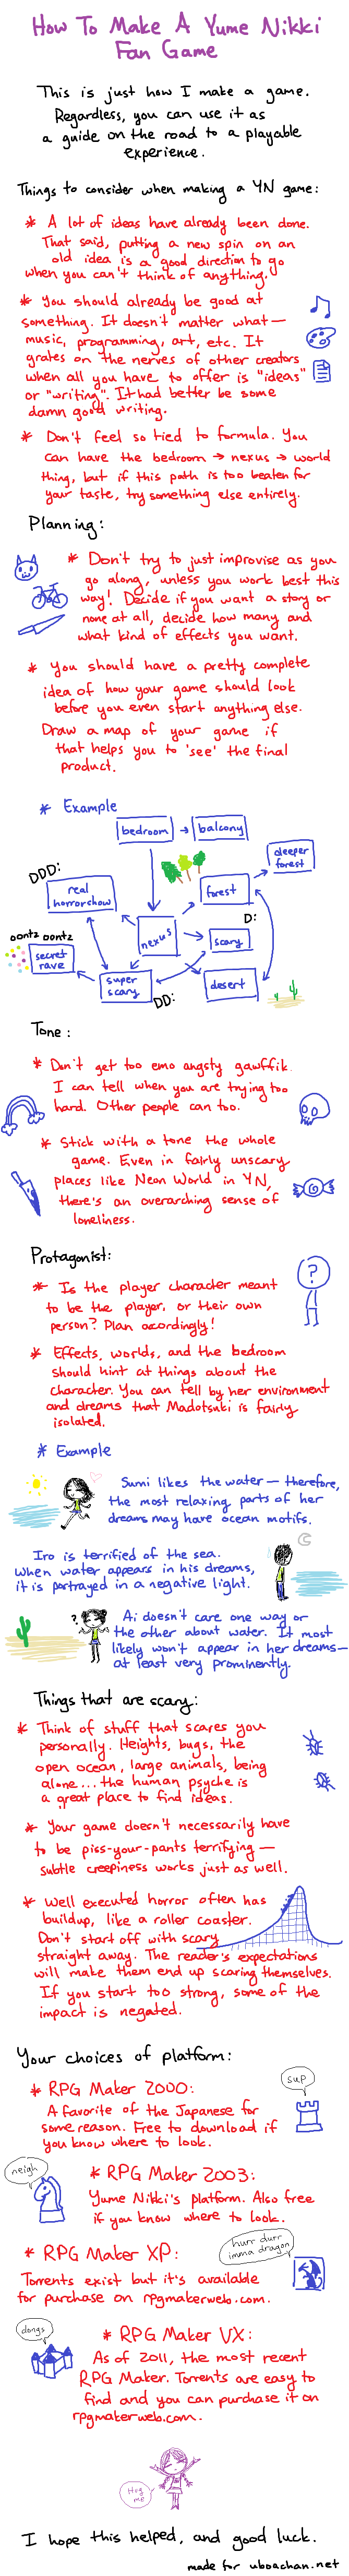 How To Make A Yume Nikki
Fan Game
This is just how I make a game.
Regardless, you can use it as
a guide on the road to a playable
experience.
Things to consider when making a YN game:
* A lot of ideas have already been done.
That said, putting a new spin on an
old idea is a good direction to go
when you can't think of anything.
* You should already be good at
something. It doesn't matter what—
music, programming, art, etc. It
grates on the nerves of other creators
when all you have to offer is "ideas"
or "writing". It had better be some
damn good writing.
* Don't feel so tied to formula. You
can have the bedroom → nexus → world
thing, but if this path is too beaten for
your taste, try something else entirely.
Planning:
* Don't try to just improvise as you
go along, unless you work best this
way! Decide if you want a story or
none at all, decide how many and
what kind of effects you want.
* You should have a pretty complete
idea of how your game should look
before you even start anything else.
Draw a map of your game if
that helps you to 'see' the final
product.
* Example
bedroom → balcony
deeper
forest
DDD:
real
horrorshow
forest
D:
oontz oontz
nexus
scary
secret
rave
super
scary
desert
DD:
Tone:
* Don't get too emo angsty gawffik.
I can tell when you are trying too
hard. Other people can too.
* Stick with a tone the whole
game. Even in fairly unscary
places like Neon World in YN,
there's an overarching sense of
loneliness.
Protagonist:
?
* Is the player character meant
to be the player, or their own
person? Plan acordingly!
* Effects, worlds, and the bedroom
should hint at things about the
character. You can tell by her environment
and dreams that Madotsuki is fairly
isolated.
* Example
Sumi likes the water— therefore,
the most relaxing parts of her
dreams may have ocean motifs.
Iro is terrified of the sea.
When water appears in his dreams,
it is portrayed in a negative light.
?
Ai doesn't care one way or
the other about water. It most
likely won't appear in her dreams—
at least very prominently.
Things that are scary:
* Think of stuff that scares you
personally. Heights, bugs, the
open ocean, large animals, being
alone... the human psyche is
a great place to find ideas.
* Your game doesn't necessarily have
to be piss-your-pants terrifying—
subtle creepiness works just as well.
* Well executed horror often has
buildup, like a roller coaster.
Don't start off with scary
straight away. The reader's expectations
will make them end up scaring themselves.
If you start too strong, some of the
impact is negated.
Your choices of platform:
sup
* RPG Maker 2000:
A favorite of the Japanese for
some reason. Free to download if
you know where to look.
neigh
* RPG Maker 2003:
Yume Nikki's platform. Also free
if you know where to look.
hurr durr
imma dragon
* RPG Maker XP:
Torrents exist but it's available
for purchase on rpgmakerweb.com.
dongs
* RPG Maker VX:
As of 2011, the most recent
RPG Maker. Torrents are easy to
find and you can purchase it on
rpgmakerweb.com.
Hug
me
I hope this helped, and good luck.
made for uboachan.net